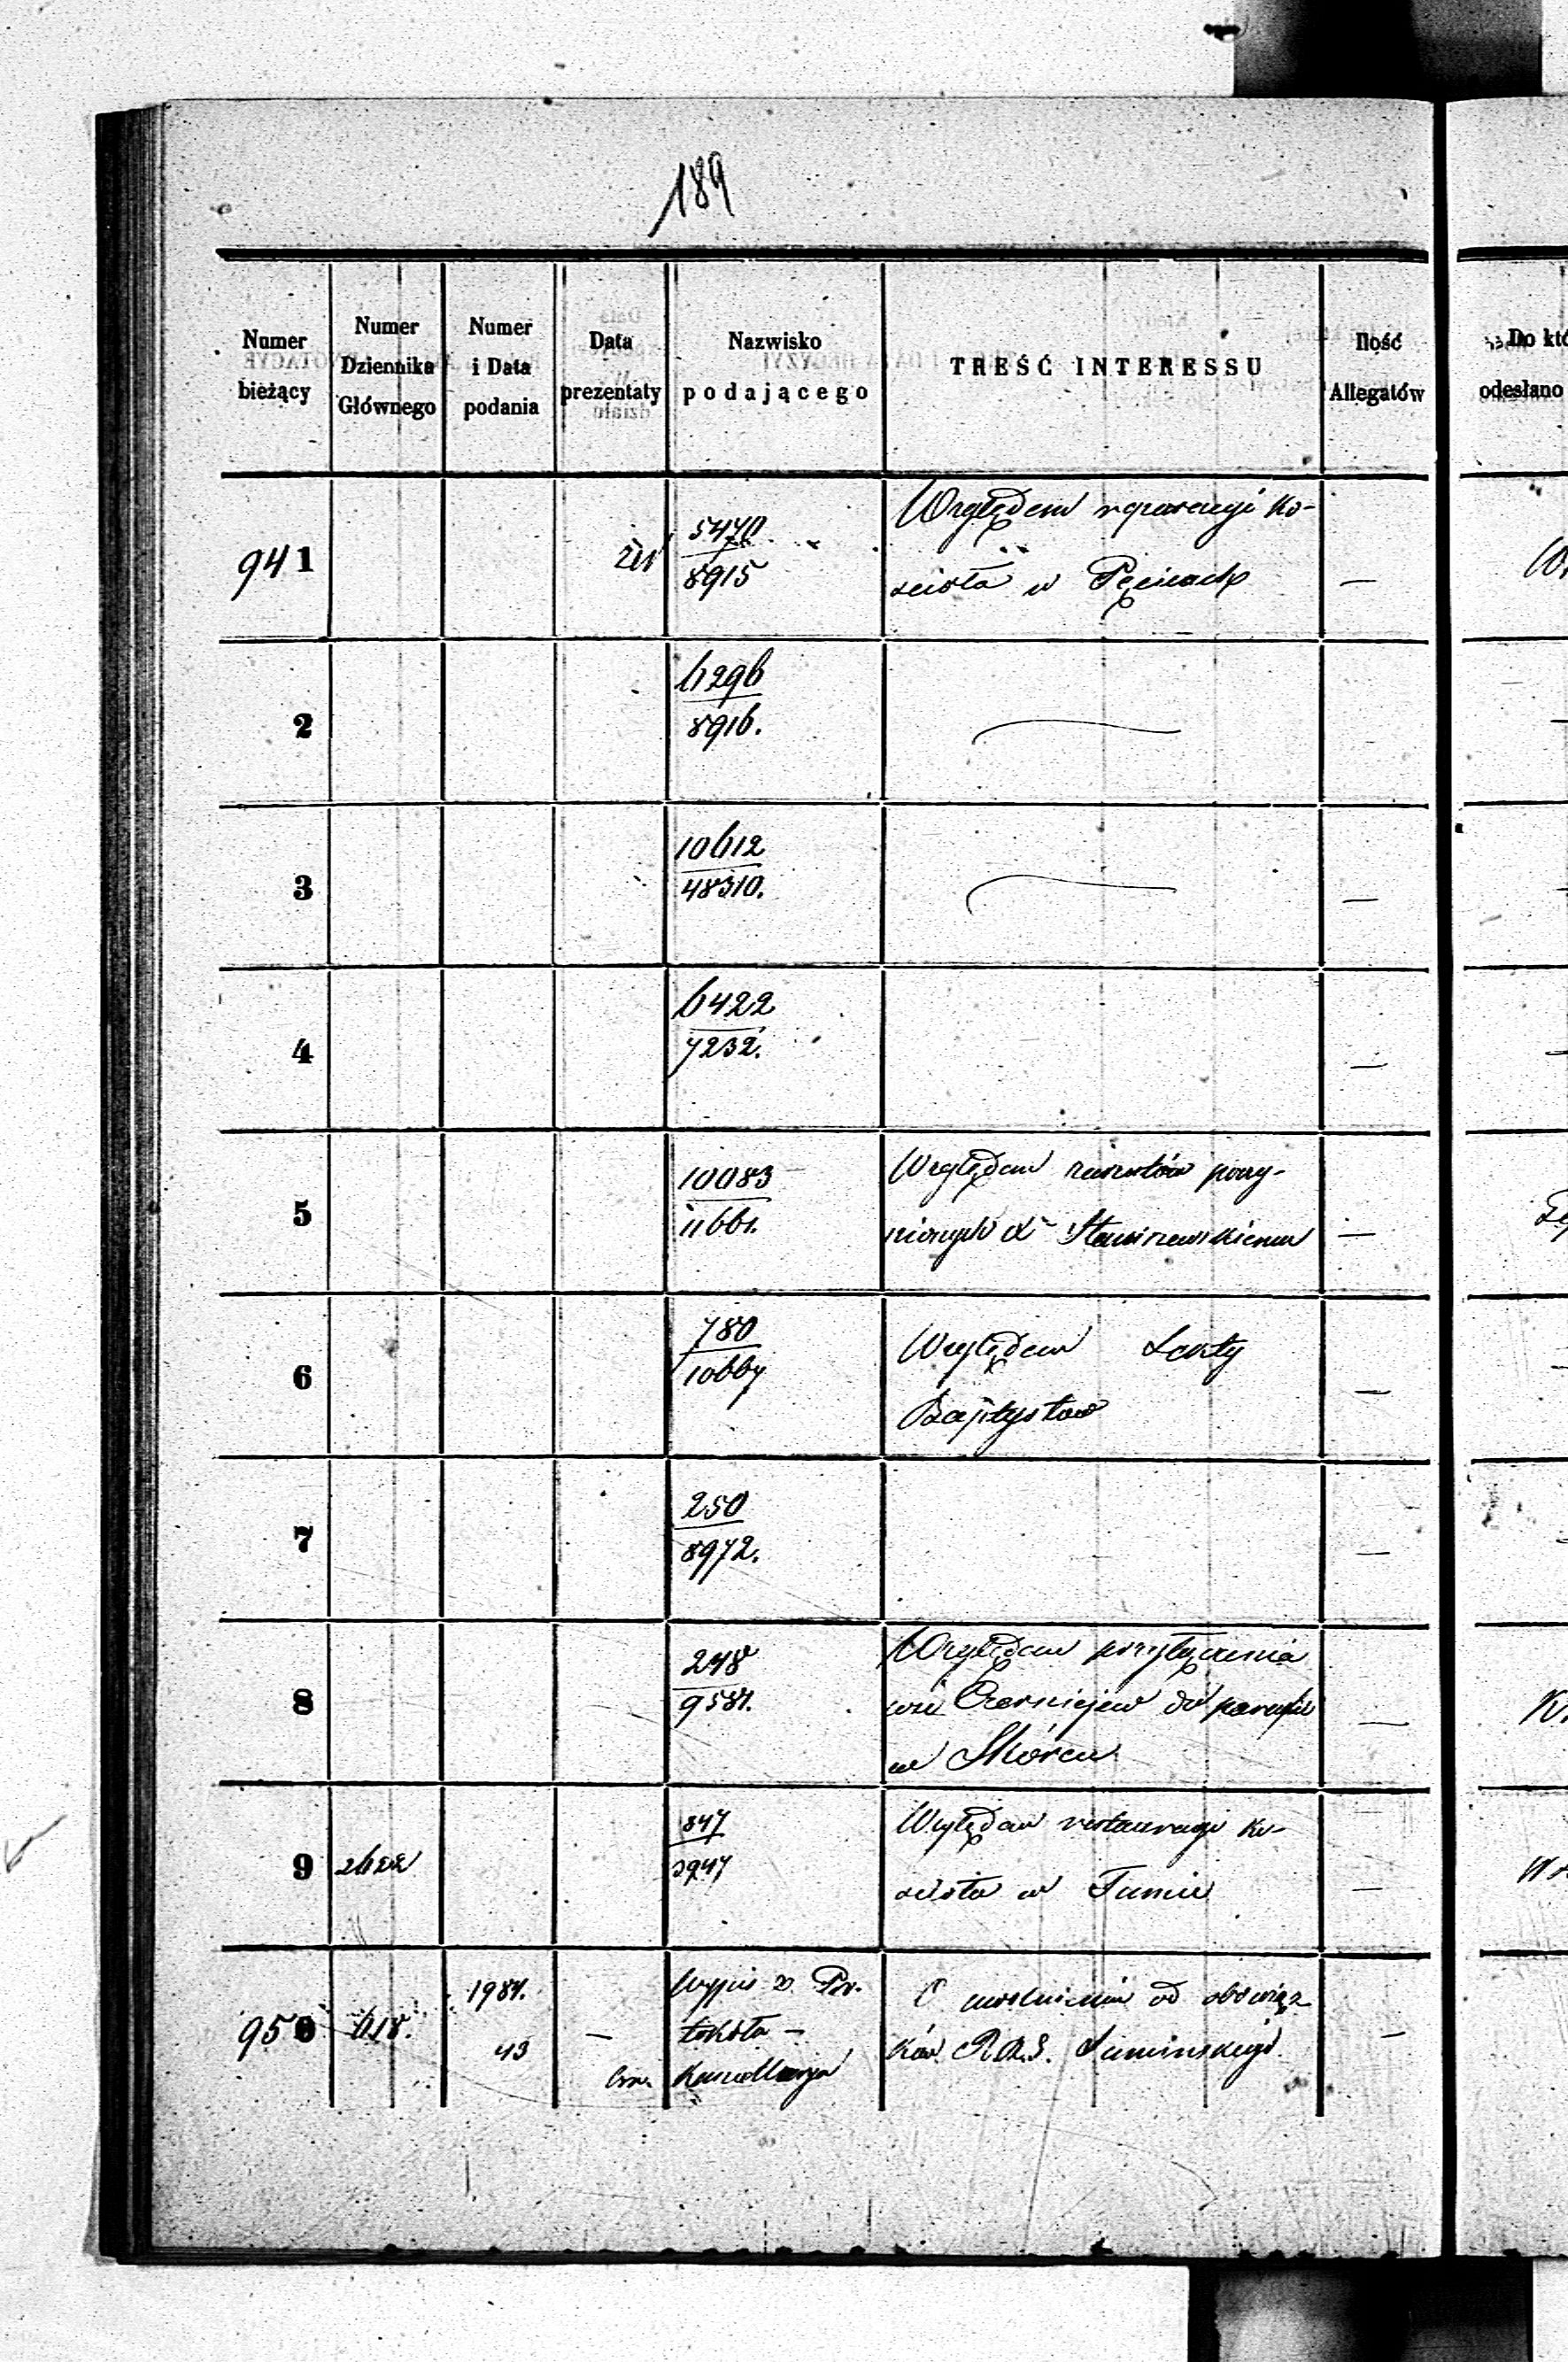 189
Numer bieżący
Numer Dziennika Głównego
Numer i Data podania
Data prezentaty
Nazwisko podającego
TREŚĆ INTERESSU
Ilość Allegatów
Do któ
odesłano
941
5470
8915
Względem reparacyi Ko-
ścioła w Pęcicach
—
2
6296
8916.
3
10612
48310.
—
4
6422
7232.
—
5
10083
11661.
Względem zarzutów poczy-
nionych X Staniszewskiemu
—
6
780
10667
Względem Sekty
Baptystów
—
7
250
8972.
—
8
248
9587.
Względem przyłączenia
wsi Czerniejew do parafii
w Skórcu
—
9
847
Względem restauracyi Ko-
ścioła w Tumie
—
950
618.
43
—
Wypis z Pro-
tokółu –
Kancellarya
O uwolnieniu od obowiąz
ków Sumińskiego
—